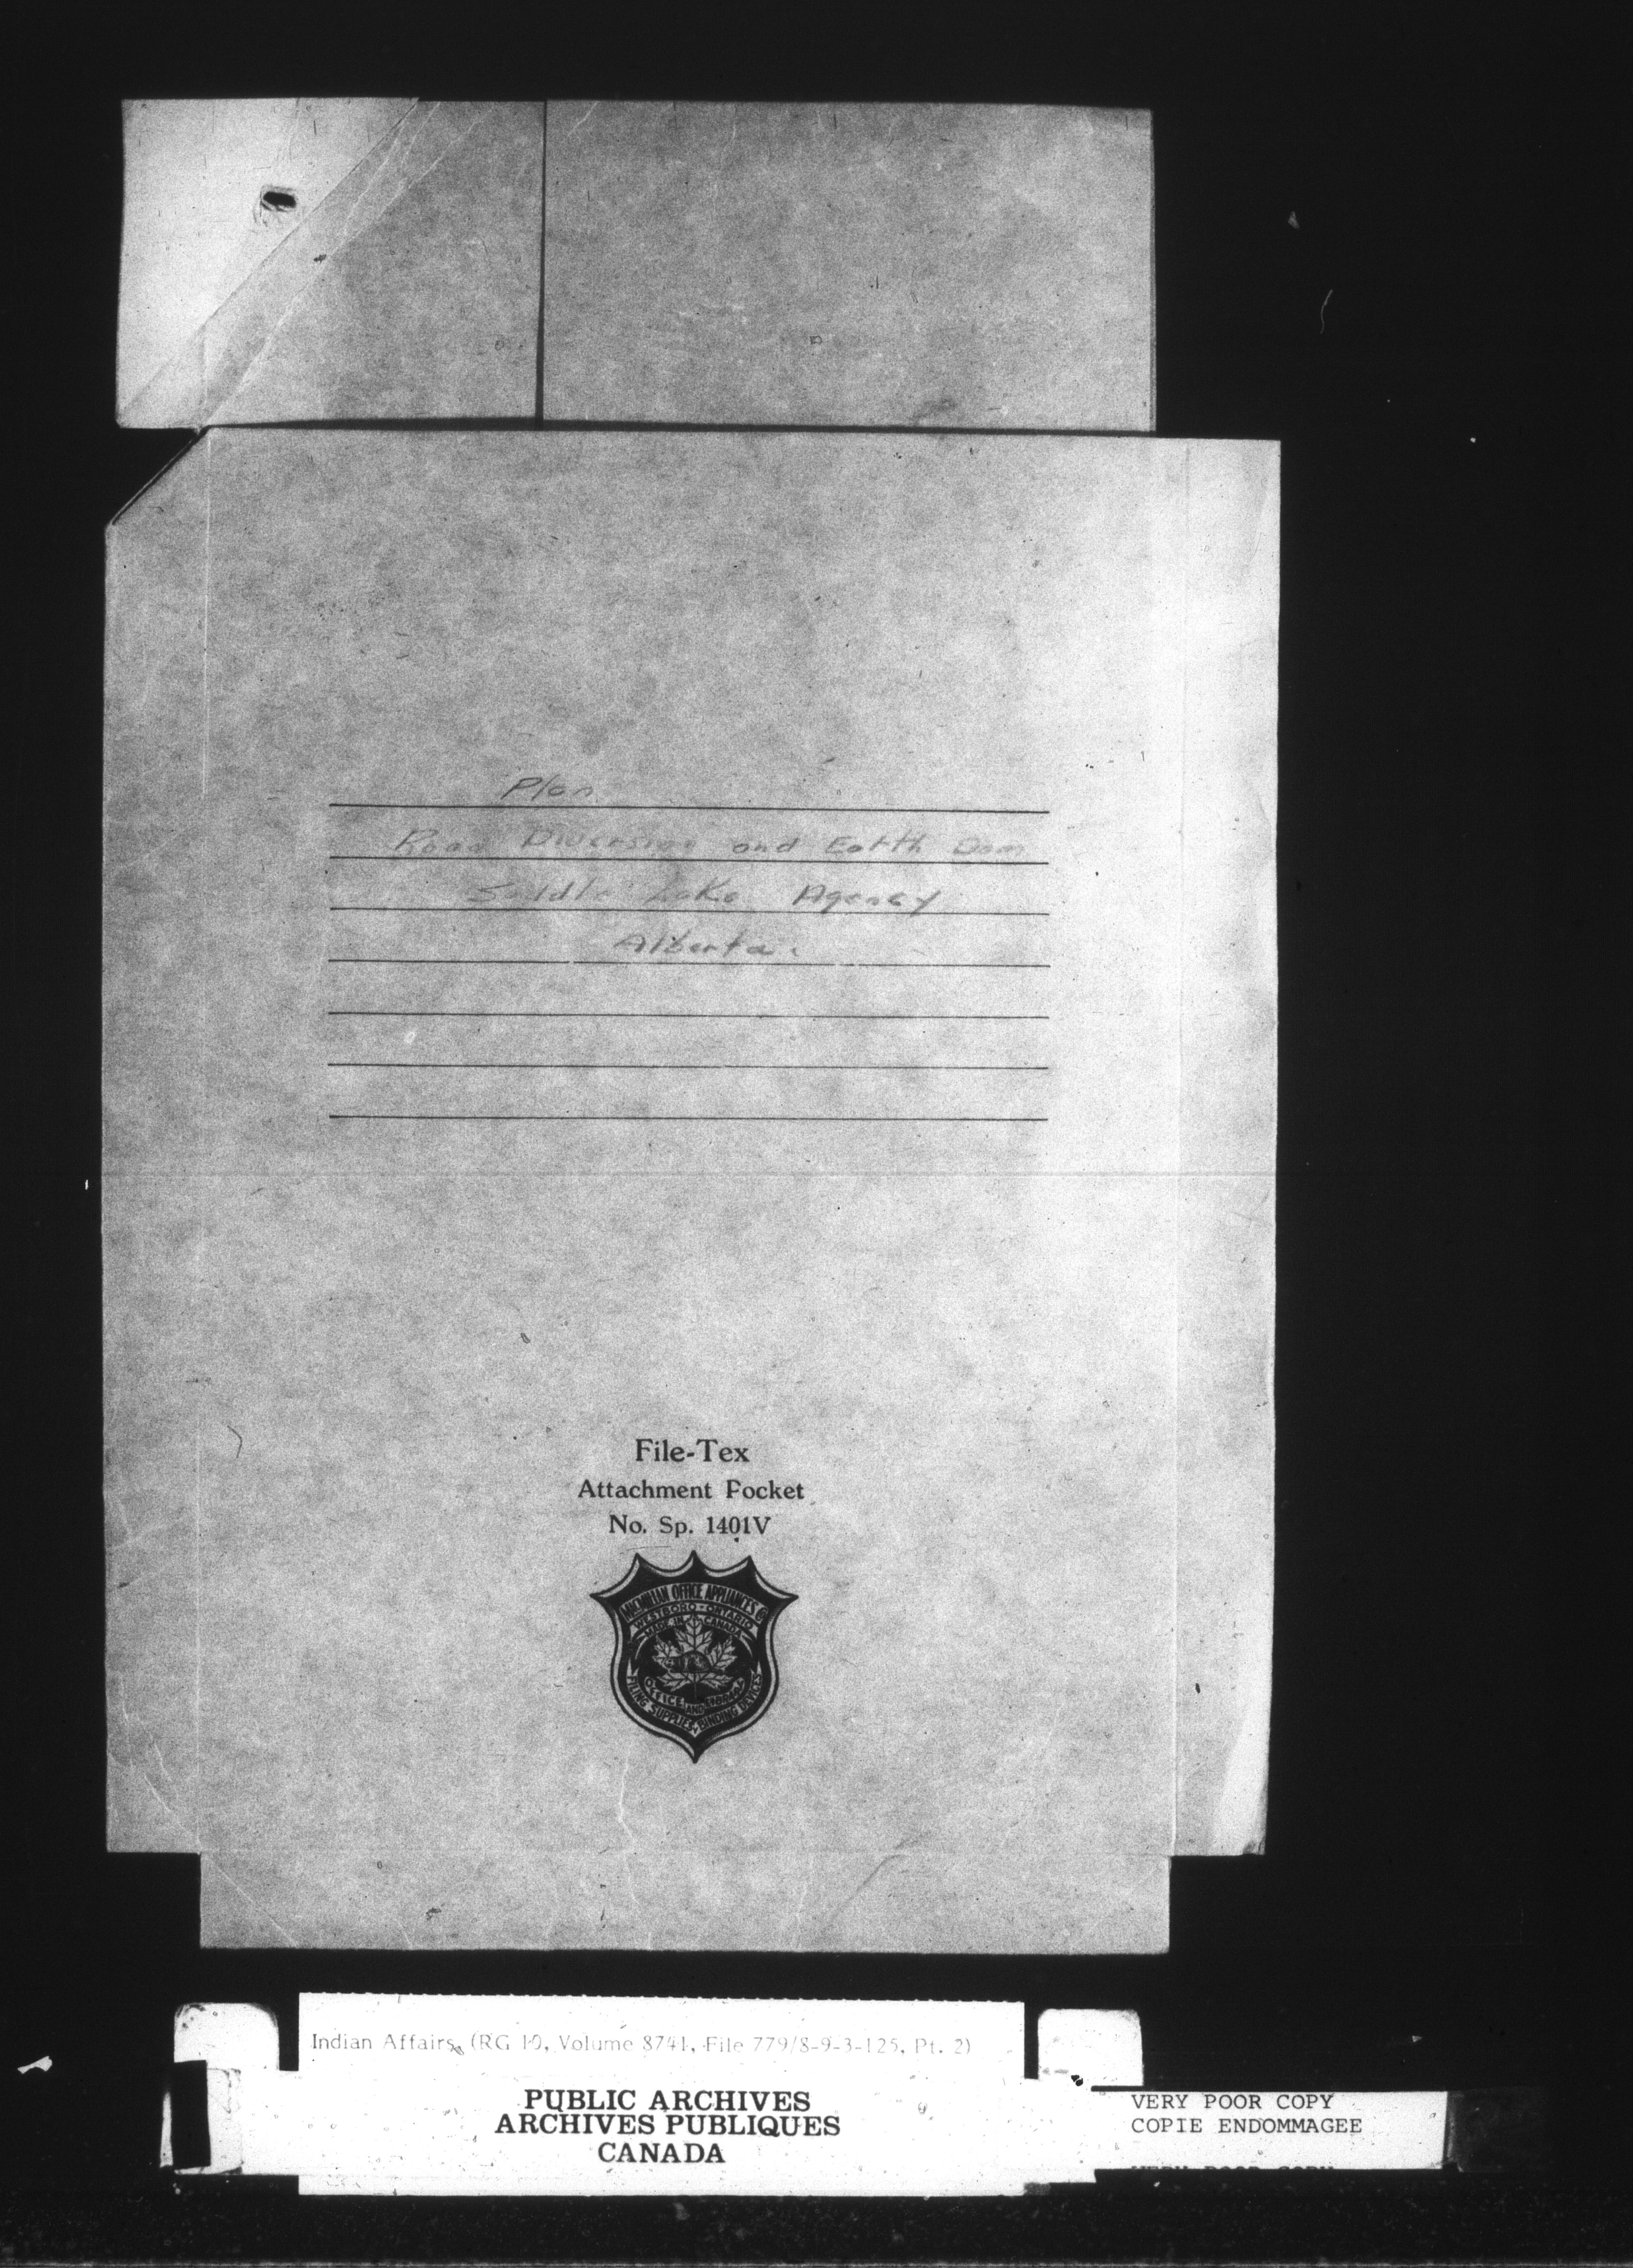 Plan
Road Diversion and Earth Dam
Saddle Lake Agency
Alberta.
File-Tex
Attachment Pocket
No. Sp. 1401V
MACMILLAN OFFICE APPLIANCES Co
WESTBORO - ONTARIO
MADE IN CANADA
OFFICE AND
FILING SUPPLIES & BINDING DEVICES
Indian Affairs, (RG 10, Volume 8741, File 779/8-9-3-125, Pt. 2)
PUBLIC ARCHIVES
ARCHIVES PUBLIQUES
CANADA
VERY POOR COPY
COPIE ENDOMMAGEE
VERY POOR COPY